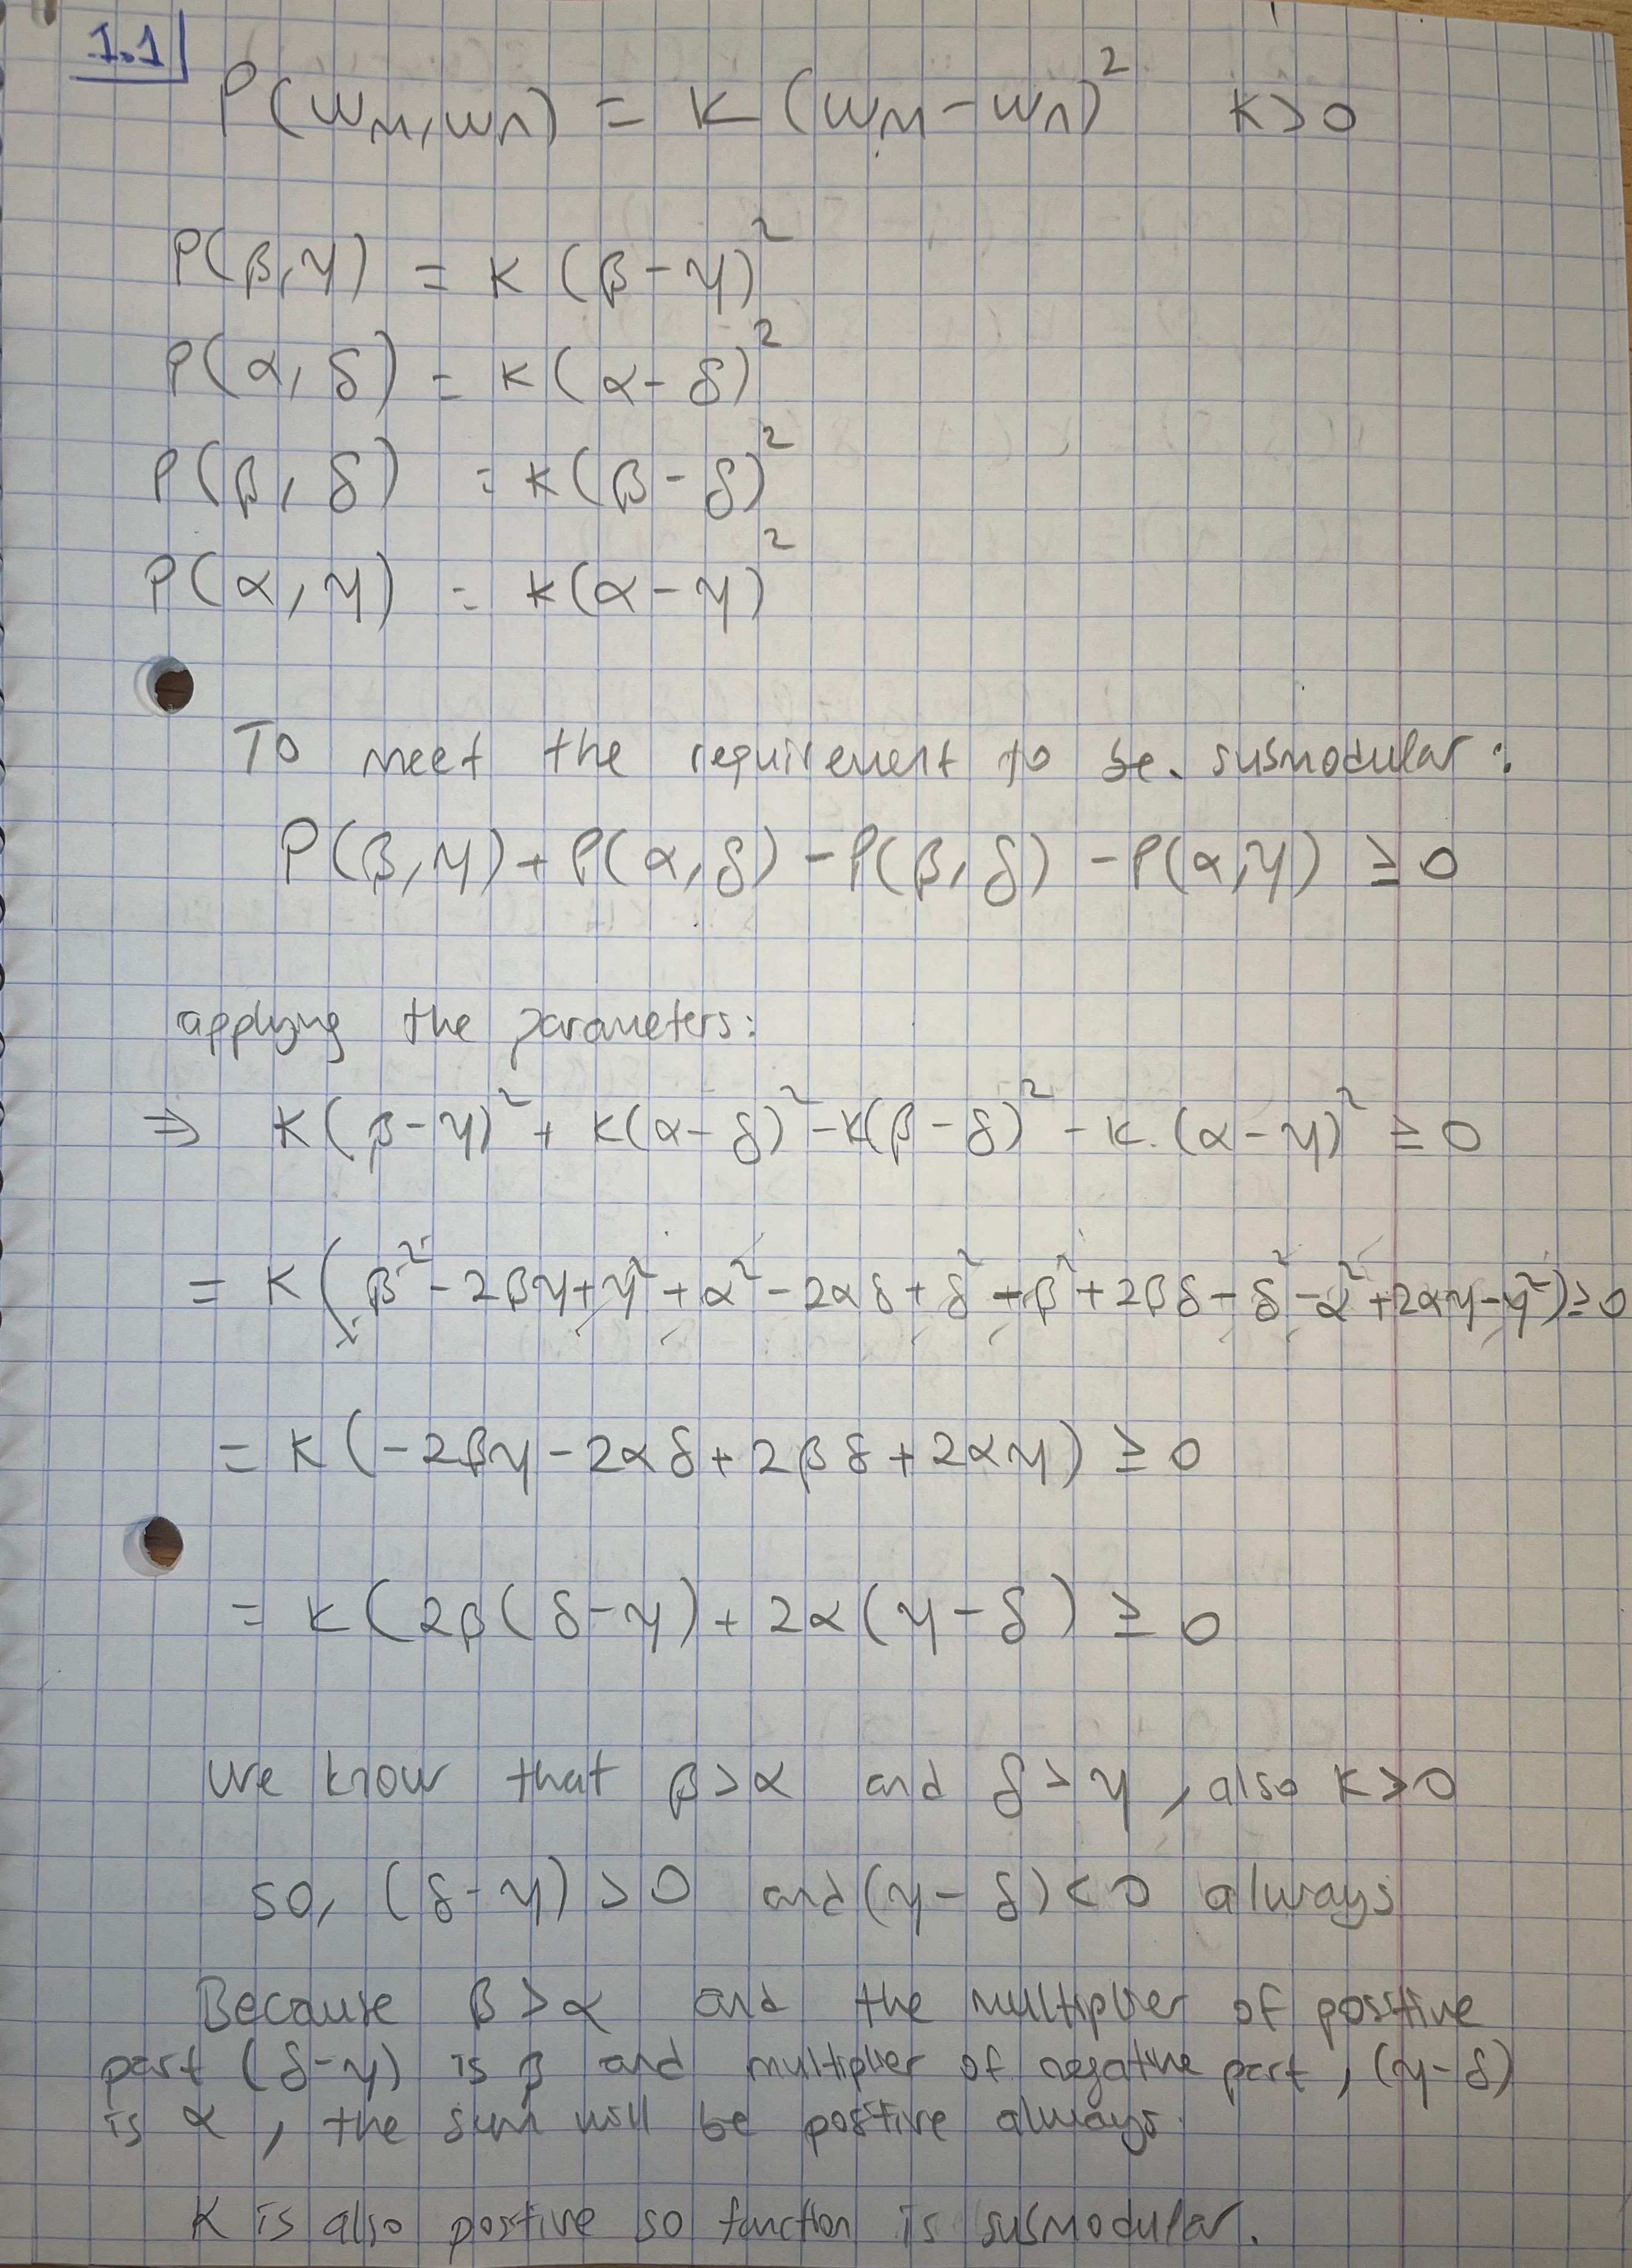 1.1
P(ωm,ωn) = K (ωm-ωn)² K>0
P(β,γ) = K (β-γ)²
P(α,δ) = K(α-δ)²
P(β,δ) = K(β-δ)²
P(α,γ) = K(α-γ)²
To meet the requirement to be submodular:
P(β,γ)+P(α,δ)-P(β,δ)-P(α,γ) ≥0
applying the parameters:
⇒ K(β-γ)²+K(α-δ)²-K(β-δ)²-K.(α-γ)² ≥0
= K(β²-2βγ+γ²+α²-2αδ+δ²-β²+2βδ-δ²-α²+2αγ-γ²)≥0
= K(-2βγ-2αδ+2βδ+2αγ) ≥0
= K(2β(δ-γ)+2α(γ-δ) ≥0
we know that β>α and δ>γ, also K>0
so, (δ-γ)>0 and (γ-δ)<0 always
Because β>α and the multiplier of positive
part (δ-γ) is β and multiplier of negative part, (γ-δ)
is α, the sum will be positive always.
K is also positive so function is submodular.